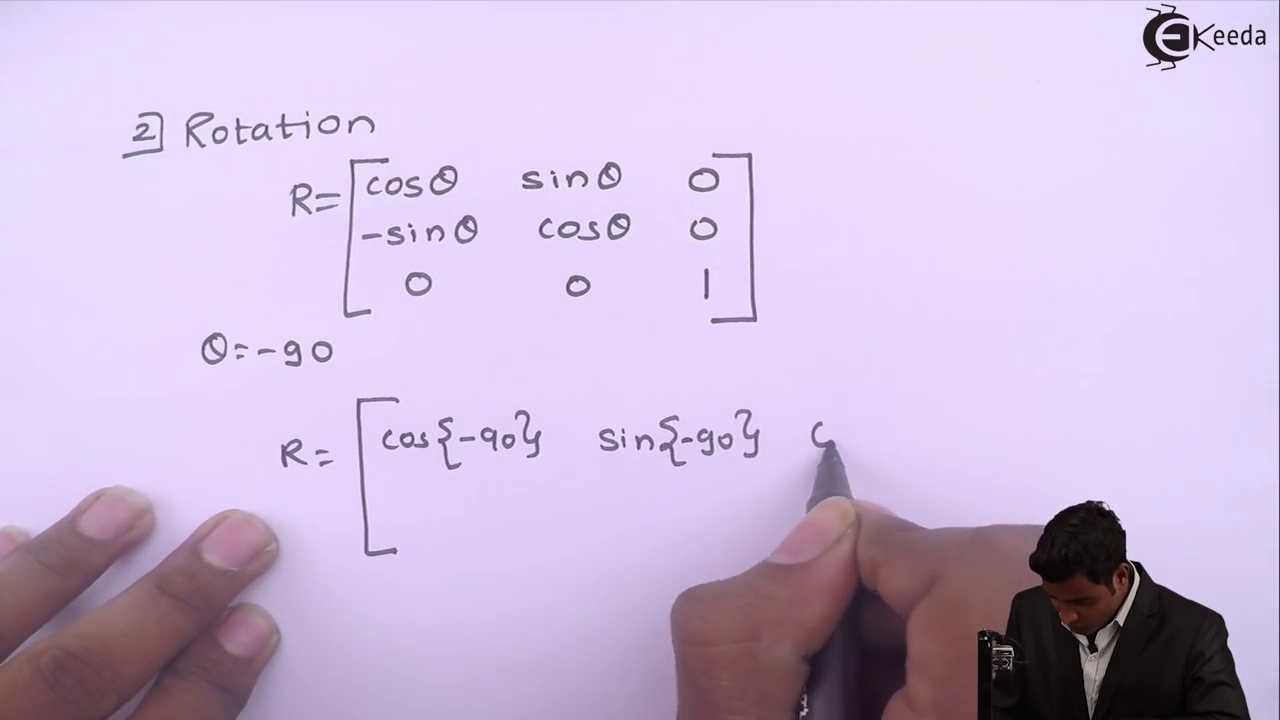 EKeeda
2 Rotation
R= [ cosθ sinθ 0
-sinθ cosθ 0
0 0 1 ]
θ=-90
R= [ cos{-90} sin{-90}